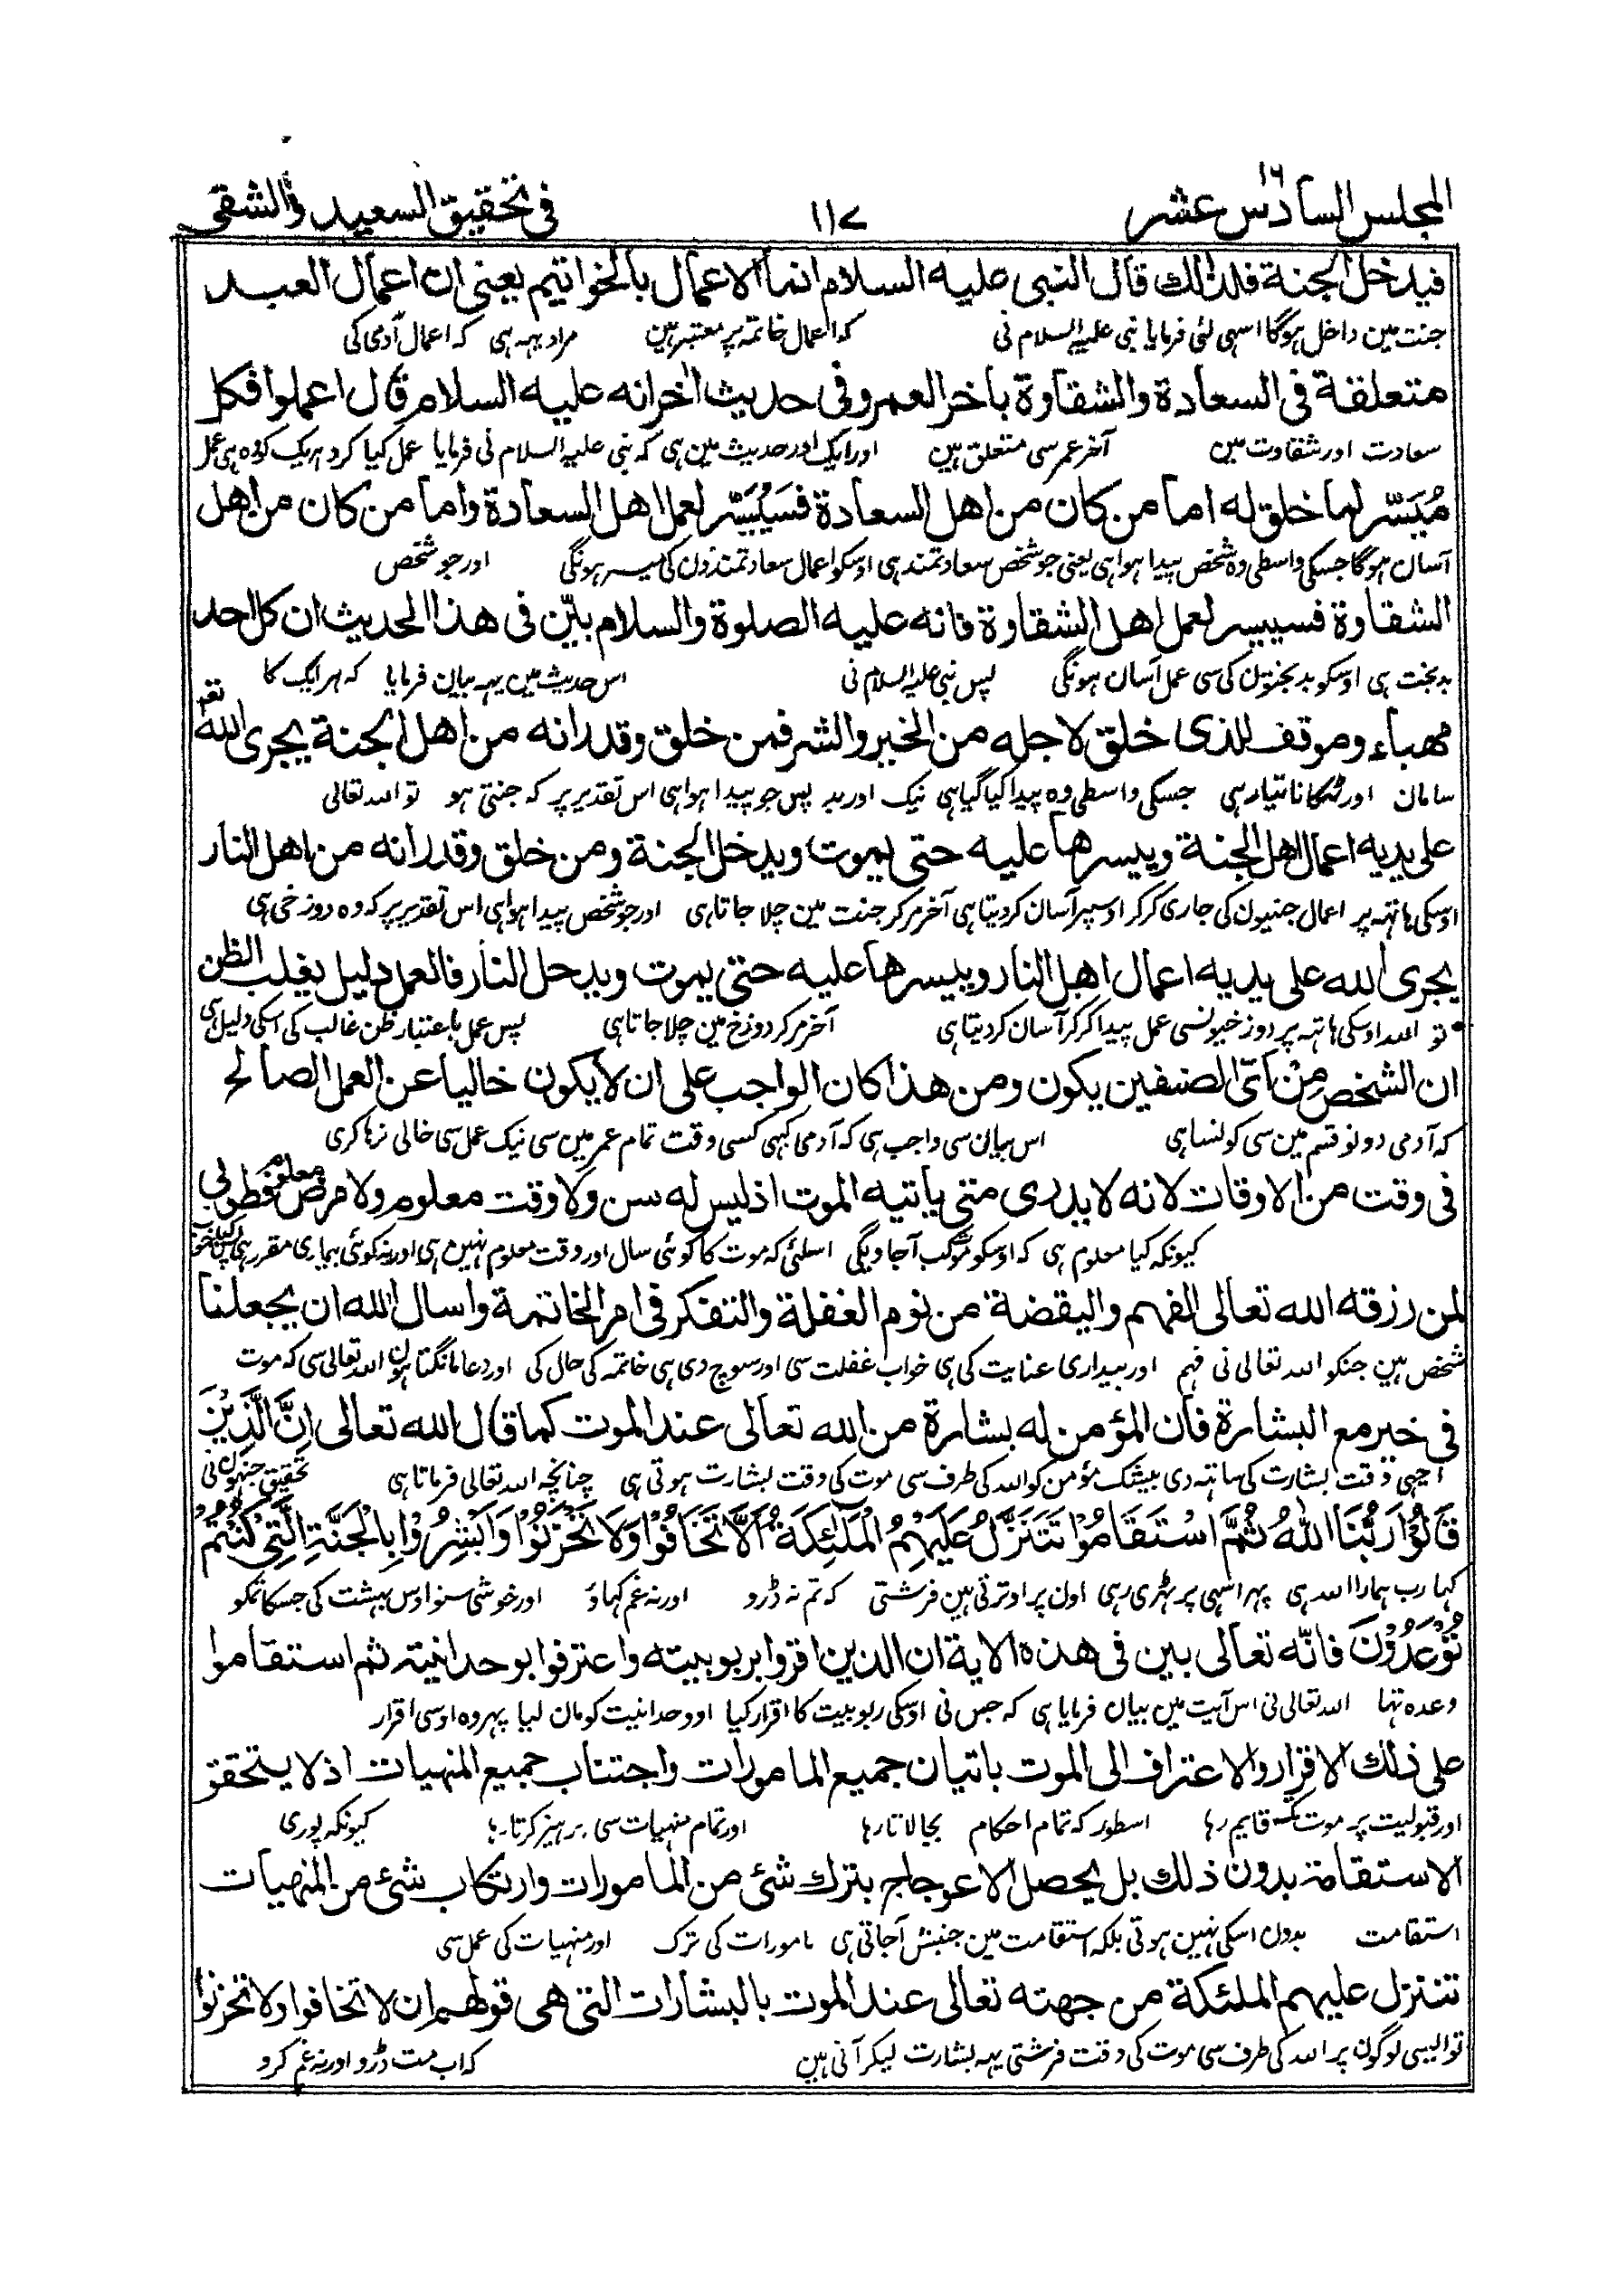 المجلس السادس عشر ١٦
١١٧
فى تحقيق السعيد والشقى
فيدخل الجنة فلذلك قال النبى عليه السلام انما الاعمال بالخواتيم يعنى ان اعمال العبد
جنت مین داخل ہوگا اسہی لئی فرمایا نبی علیہ السلام نی کہ اعمال خاتمہ پر معتبر ہین مراد یہہ ہی کہ اعمال آدمی کی
متعلقة فى السعادة والشقاوة باخر العمر وفى حديث اخر انه عليه السلام قال اعملوا فكل
سعادت اور شقاوت مین آخر عمر سی متعلق ہین اور ایک اور حدیث مین ہی کہ نبی علیہ السلام نی فرمایا عمل کیا کرو ہر یک کو وہ ہی عمل
مُيَسَّر لما خلق له اما من كان من اهل السعادة فسَيُيَسَّر لعمل اهل السعادة واما من كان من اهل
آسان ہوگا جسکی واسطی وہ شخص پیدا ہوا ہی یعنی جو شخص سعادتمند ہی اوسکو اعمال سعادتمندون کی میسر ہونگی اور جو شخص
الشقاوة فسييسر لعمل اهل الشقاوة فانه عليه الصلوة والسلام بيّن فى هذا الحديث ان كل احد
بدبخت ہی اوسکو بدبختون کی سی عمل آسان ہونگی پس نبی علیہ السلام نی اس حدیث مین یہہ بیان فرمایا کہ ہر ایک کا
مهياء وموقف للذى خلق لاجله من الخير والشر فمن خلق وقدر انه من اهل الجنة يجرى الله تعم
سامان اور ٹہکانا تیار ہی جسکی واسطی وہ پیدا کیا گیا ہی نیک اور بد پس جو پیدا ہوا ہی اس تقدیر پر کہ جنتی ہو تو اللہ تعالی
على يديه اعمال اهل الجنة وييسرها عليه حتى يموت ويدخل الجنة ومن خلق وقدر انه من اهل النار
اوسکی ہاتہہ پر اعمال جنتیون کی جاری کرکر اوسپر آسان کردیتا ہی آخر مرکر جنت مین چلا جاتا ہی اور جو شخص پیدا ہوا ہی اس تقدیر پر کہ وہ دوزخی ہی
يجرى الله على يديه اعمال اهل النار وييسرها عليه حتى يموت ويدخل النار فالعمل دليل يغلب الظن
تو اللہ اوسکی ہاتہہ پر دوزخیونسی عمل پیدا کرکر آسان کردیتا ہی آخر مرکر دوزخ مین چلا جاتا ہی پس عمل باعتبار ظن غالب کی اسکی دلیل ہی
ان الشخص مِنْ اَىّ الصنفين يكون ومن هذا كان الواجب على ان لا يكون خاليا عن العمل الصالح
کہ آدمی دونو قسم مین سی کونسا ہی اس بیان سی واجب ہی کہ آدمی کبہی کسی وقت تمام عمر مین سی نیک عمل سی خالی نرہا کری
فى وقت من الاوقات لانه لا يدرى متى ياتيه الموت اذ ليس له سن ولا وقت معلوم ولا مرض معلوم فطوبى
کیونکہ کیا معلوم ہی کہ اوسکو موت کب آجاویگی اسلئی کہ موت کا کوئی سال اور وقت معلوم نہین ہی اور نہ کوئی بیماری مقرر ہی
لمن رزقه الله تعالى الفهم واليقضة من نوم الغفلة والتفكر فى امر الخاتمة واسال الله ان يجعلنا
شخص ہین جنکو اللہ تعالی نی فہم اور بیداری عنایت کی ہی خواب غفلت سی اور سوچ دی ہی خاتمہ کی حال کی اور دعا مانگتا ہون اللہ تعالی سی کہ موت
فى خير مع البشارة فان المؤمن له بشارة من الله تعالى عند الموت كما قال الله تعالى اِنَّ الَّذِيْنَ
اچہی وقت بشارت کی ساتہہ دی بیشک مؤمن کو اللہ کی طرف سی موت کی وقت بشارت ہوتی ہی چنانچہ اللہ تعالی فرماتا ہی تحقیق جنہون نی
قَالُوْا رَبُّنَا اللهُ ثُمَّ اسْتَقَامُوْا تَتَنَزَّلُ عَلَيْهِمُ الْمَلٰٓئِكَةُ اَلَّا تَخَافُوْا وَلَا تَحْزَنُوْا وَاَبْشِرُوْا بِالْجَنَّةِ الَّتِىْ كُنْتُمْ
کہا رب ہمارا اللہ ہی پہر اسہی پر ٹہری رہی اون پر اوترتی ہین فرشتی کہ تم نہ ڈرو اور نہ غم کہاؤ اور خوشی سنو اوس بہشت کی جسکا تمکو
تُوْعَدُوْنَ فانّه تعالى بين فى هذه الاية ان الذين اقروا بربوبيته واعترفوا بوحدانيته ثم استقاموا
وعدہ تہا اللہ تعالی نی اس آیت مین بیان فرمایا ہی کہ جس نی اوسکی ربوبیت کا اقرار کیا اور وحدانیت کو مان لیا پہر وہ اوسی اقرار
على ذلك الاقرار والاعتراف الى الموت باتيان جميع المامورات واجتناب جميع المنهيات اذ لا يتحقق
اور قبولیت پر موت تک قایم رہا اسطور کہ تمام احکام بجا لاتا رہا اور تمام منہیات سی پرہیز کرتا رہا کیونکہ پوری
الاستقامة بدون ذلك بل يحصل الاعوجاج بترك شئ من المامورات وارتكاب شئ من المنهيات
استقامت بدون اسکی نہین ہوتی بلکہ استقامت مین جنبش آجاتی ہی مامورات کی ترک اور منہیات کی عمل سی
تتنزل عليهم الملئكة من جهته تعالى عند الموت بالبشارات التى هى قولهم ان لا تخافوا ولا تحزنوا
تو ایسی لوگون پر اللہ کی طرف سی موت کی وقت فرشتی یہہ بشارت لیکر آتی ہین کہ اب مت ڈرو اور نہ غم کرو